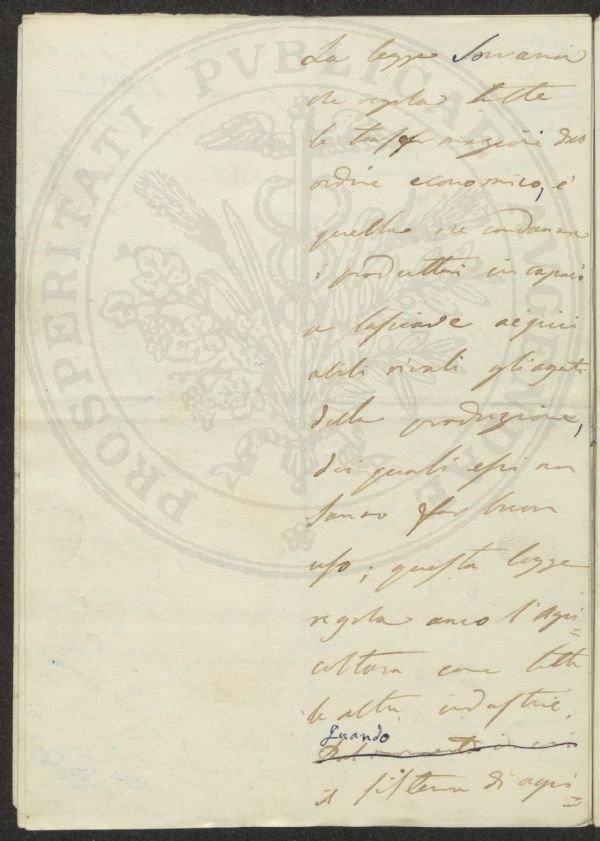 PROSPERITATI PVBLICAE AVGENDAE
La legge Sovrana
che regola tutte
le trasformazioni dell'
ordine economico, è
quella che condanna
i produttori incapaci
a lasciare a' più
abili rivali gli agenti
della produzione,
dei quali essi non
sanno far buon
uso; questa legge
regola anco l'Agri=
coltura come tutte
le altre industrie.
Quando
il sistema di agri=